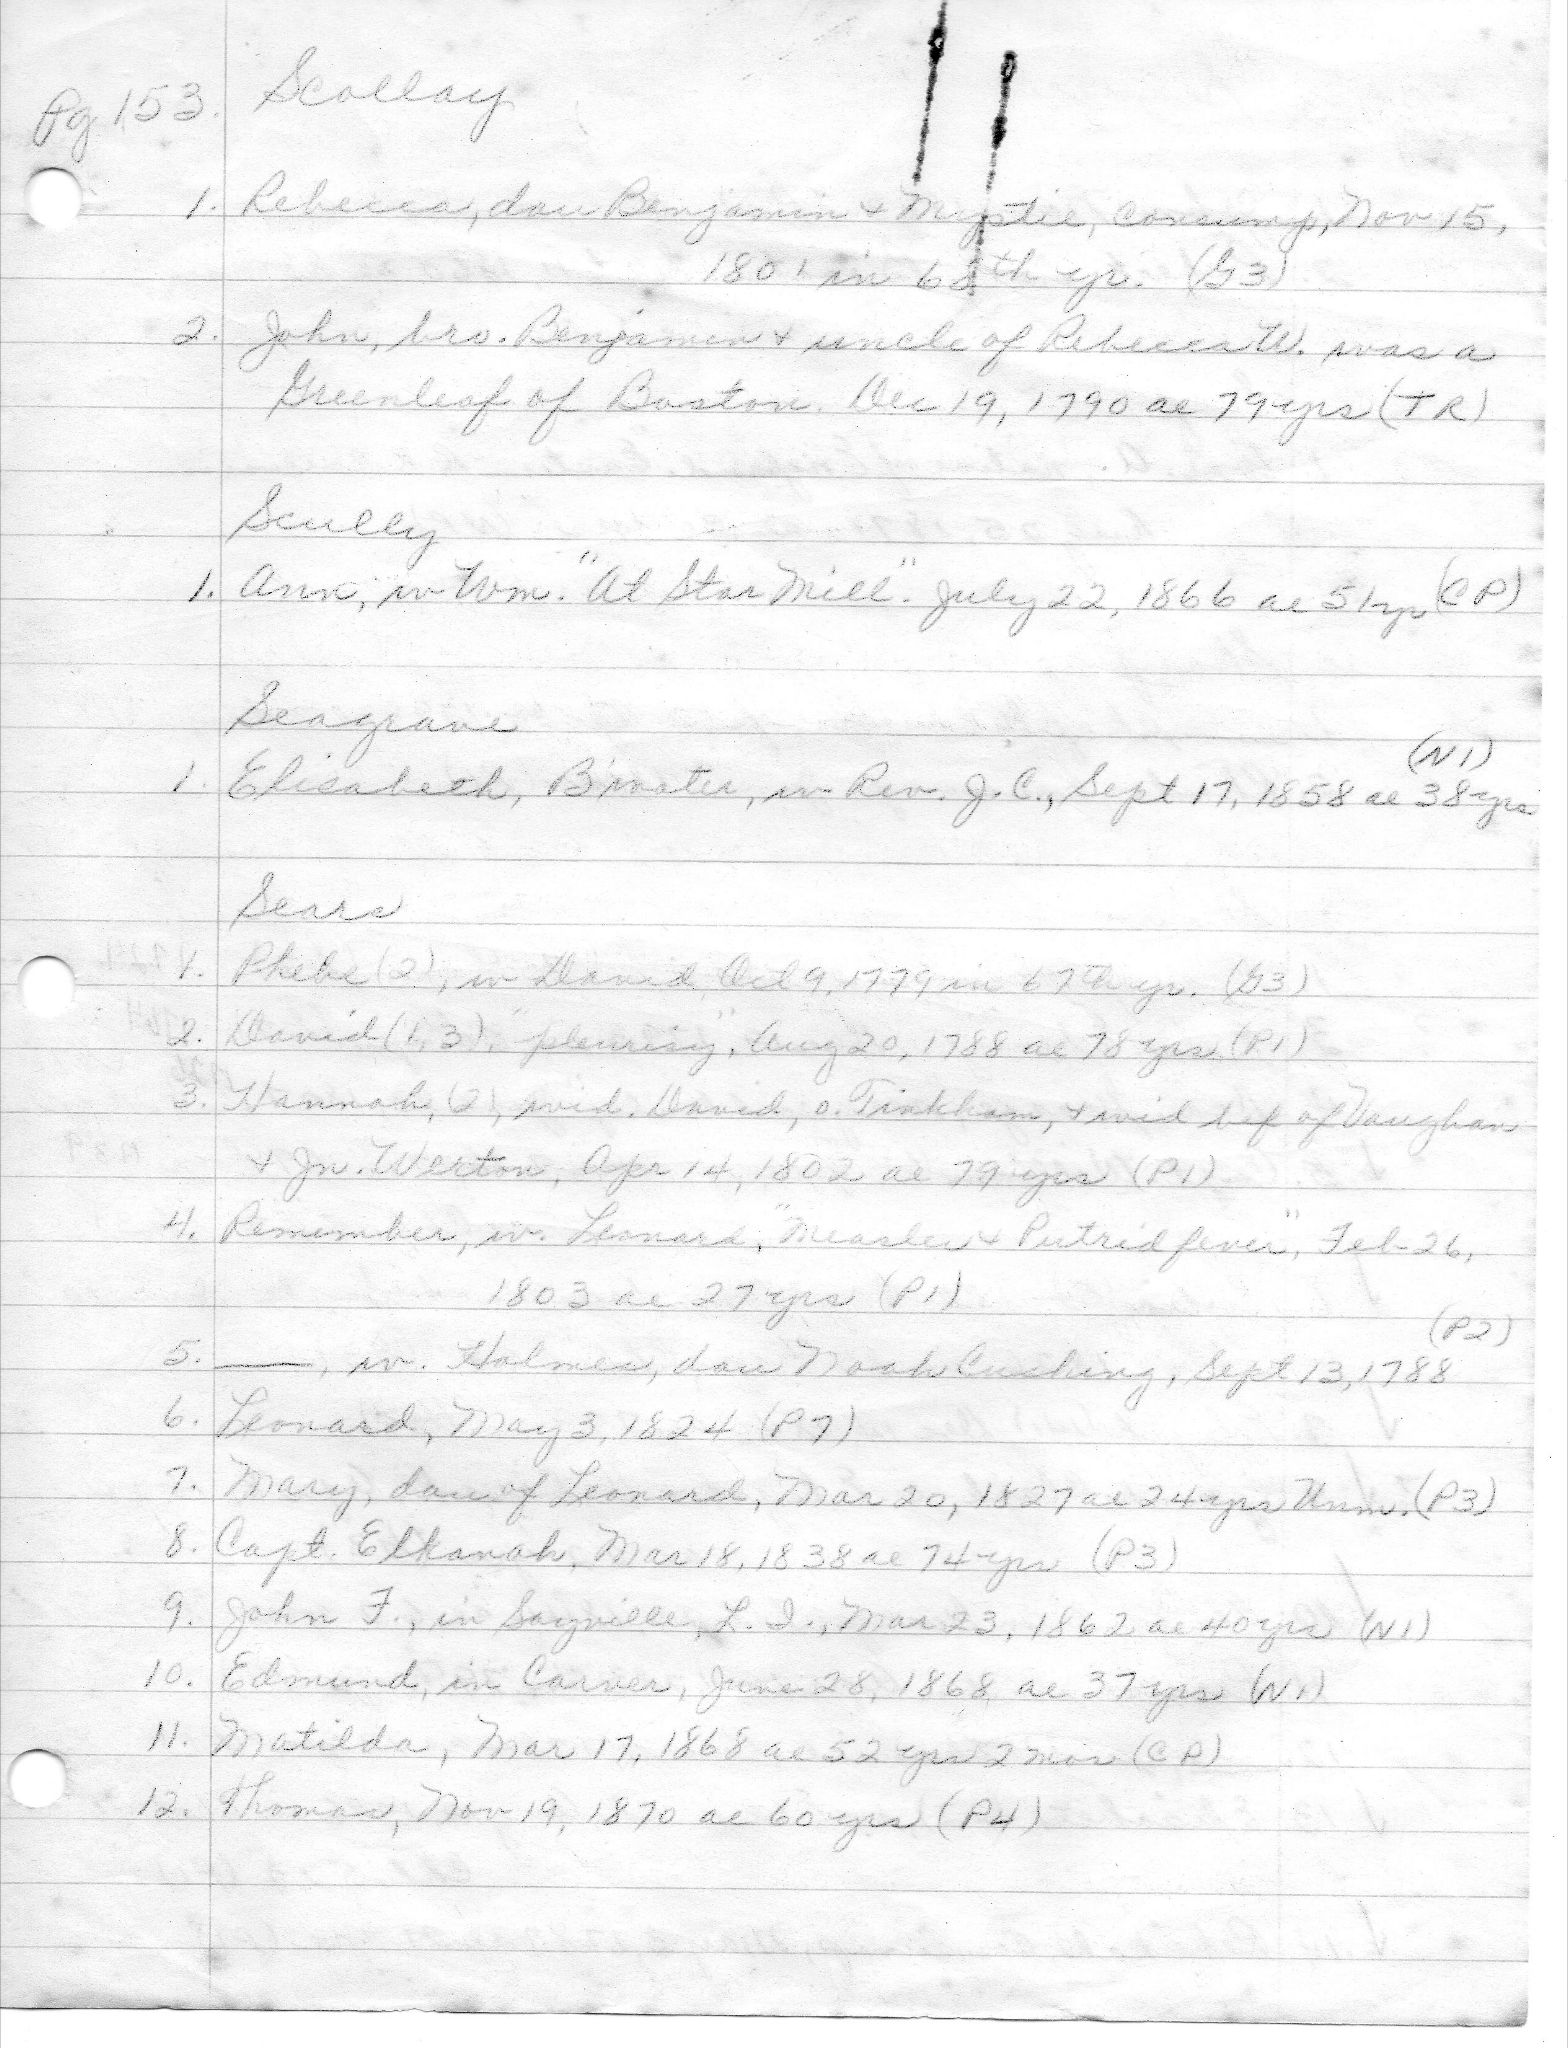 Pg 153. Scollay
1. Rebecca, dau Benjamin & Mystie, consump, Nov 15,
1801 in 68th yr. (G3)
2. John, bro. Benjamin & uncle of Rebecca W. was a
Greenleaf of Boston. Dec 19, 1790 ae 79 yrs (TR)
Scully
1. Ann, w Wm. "At Star Mill". July 22, 1866 ae 51 yr (CP)
Seagrave
(N1)
1. Elisabeth, B'water, w Rev. J.C., Sept 17, 1858 ae 38 yrs
Sears
1. Phebe (2), w David, Oct 9, 1779 in 67th yr. (G3)
2. David (1,3), "pleurisy", Aug 20, 1788 ae 78 yrs (P1)
3. Hannah, (2), wid. David, o. Tinkham, & wid bef of Vaughan
& Jn. Weston, Apr 14, 1802 ae 79 yrs (P1)
4. Remember, w. Leonard, "Measles & Putrid fever", Feb 26,
1803 ae 27 yrs (P1)
(P2)
5. ——, w. Holmes, dau Noah Cushing, Sept 13, 1788
6. Leonard, May 3, 1824 (P7)
7. Mary, dau of Leonard, Mar 20, 1827 ae 24 yrs Unm. (P3)
8. Capt. Elkanah, Mar 18, 1838 ae 74 yrs (P3)
9. John F., in Sayville, L.I., Mar 23, 1862 ae 40 yrs (N1)
10. Edmund, in Carver, June 28, 1868 ae 37 yrs (N1)
11. Matilda, Mar 17, 1868 ae 52 yrs 2 mos (CP)
12. Thomas, Nov 19, 1870 ae 60 yrs (P4)